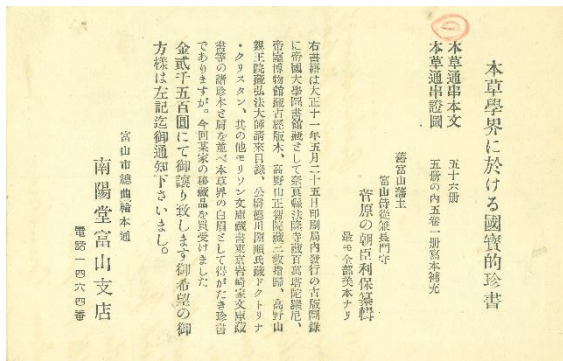 本草學界に於ける國寶的珍書
本草通串本文　五十六册
本草通串證圖　五册の內五卷一册寫本補充
舊富山藩主
富山侍從兼長門守
菅原の朝臣利保纂輯
最モ全部美本ナリ
右書籍は大正十一年五月二十五日印刷局內發行の古版圖錄
に帝國大學圖書館藏として奈良縣法隆寺藏百萬塔陀羅尼、
帝室博物館藏古經版木、高野山正智院藏三敎指歸、高野山
親王院藏弘法大師請來目錄、公爵德川圀順氏藏ドクトリナ
・クリスタン、其の他モリソン文庫藏書東京岩崎家文庫藏
書等の諸珍本と肩を並べ本草界の白眉として得がたき珍書
でありますが。今回某家の秘藏品を買受けました
金貳千五百圓にて御讓り致します御希望の御
方樣は左記迄御通知下さいまし。
富山市總曲輪本通
南陽堂富山支店
電話一四六四番